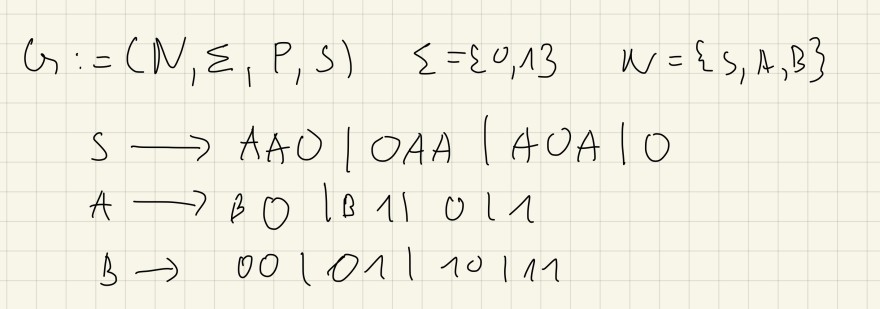 G := (N, Σ, P, S) Σ = {0,1} N = {S, A, B}
S → AA0 | 0AA | A0A | 0
A → B0 | B1 | 0 | 1
B → 00 | 01 | 10 | 11